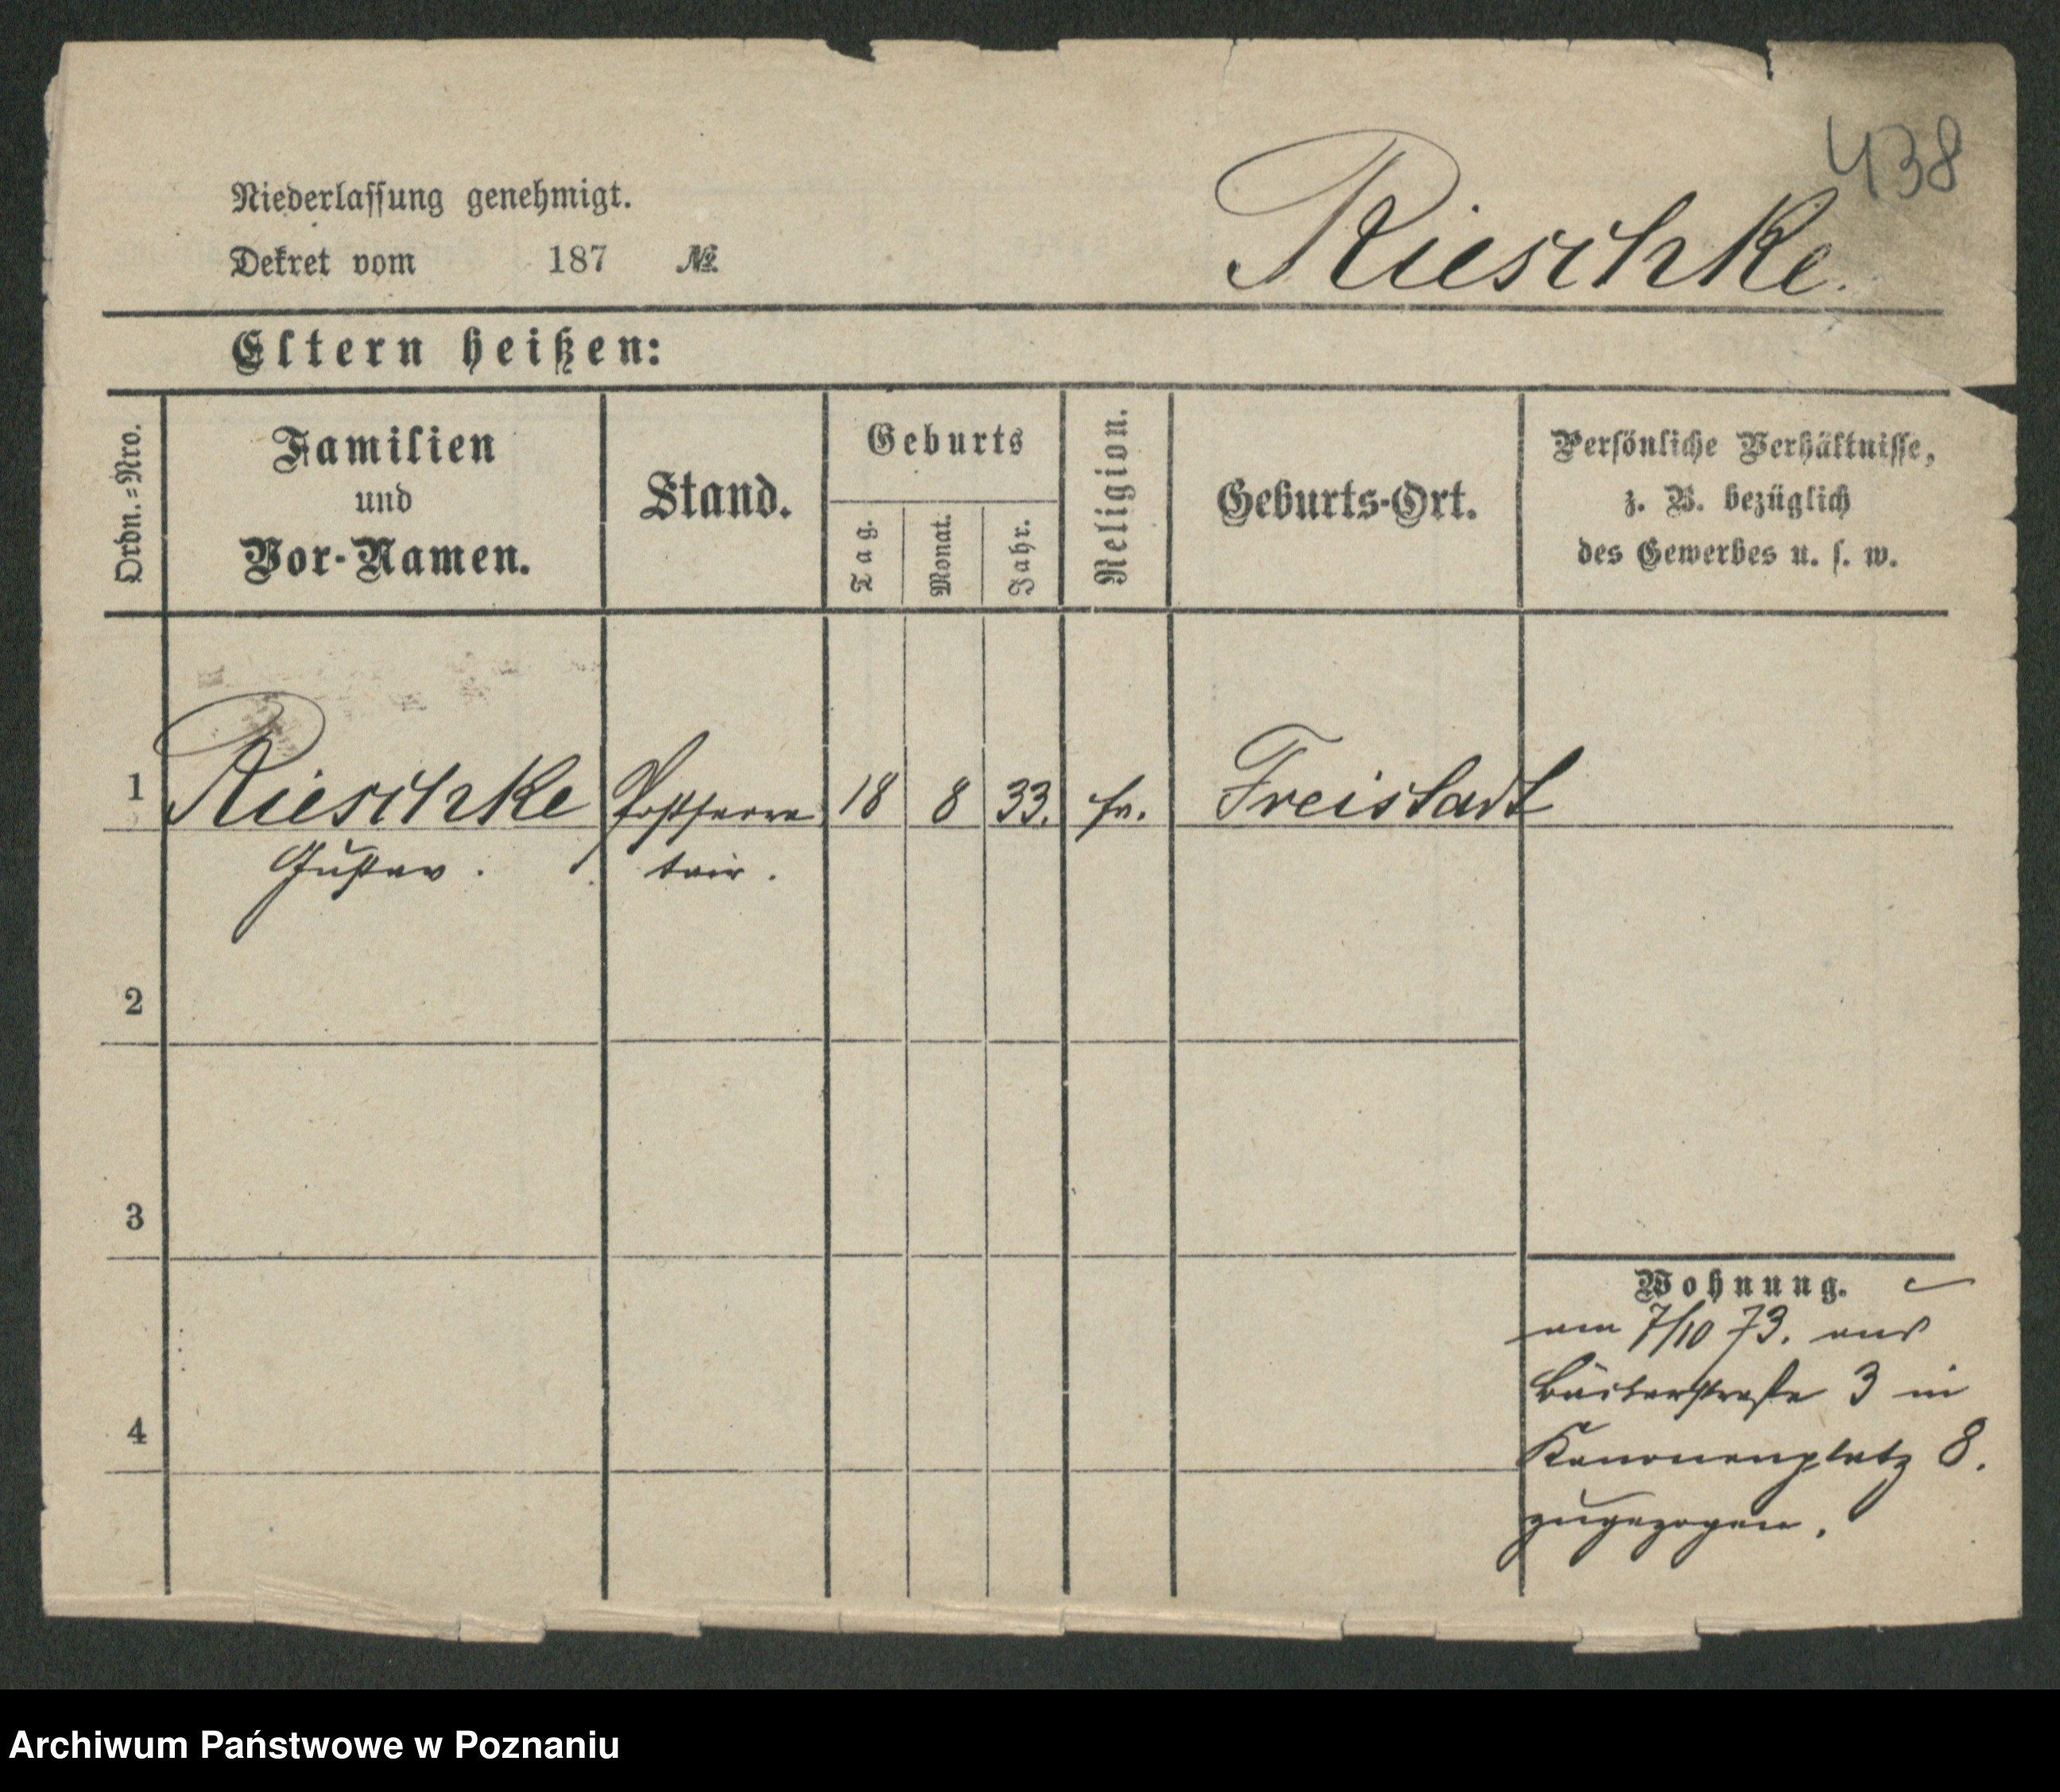 438
Niederlassung genehmigt.
Rieschke.
Dekret vom 187 №
Eltern heißen:
Ordn.=Nro.
Familien
und
Vor-Namen.
Stand.
Geburts
Tag.
Monat.
Jahr.
Religion.
Geburts-Ort.
Persönliche Verhältnisse,
z. B. bezüglich
des Gewerbes u. s. w.
1 Rieschke 18 8 33. Freistadt
Gustav.
2
3
Wohnung.
am 7/10 73. aus
Bäckerstraße 3 in
4
Kanonenplatz 8.
zugezogen.
Archiwum Państwowe w Poznaniu